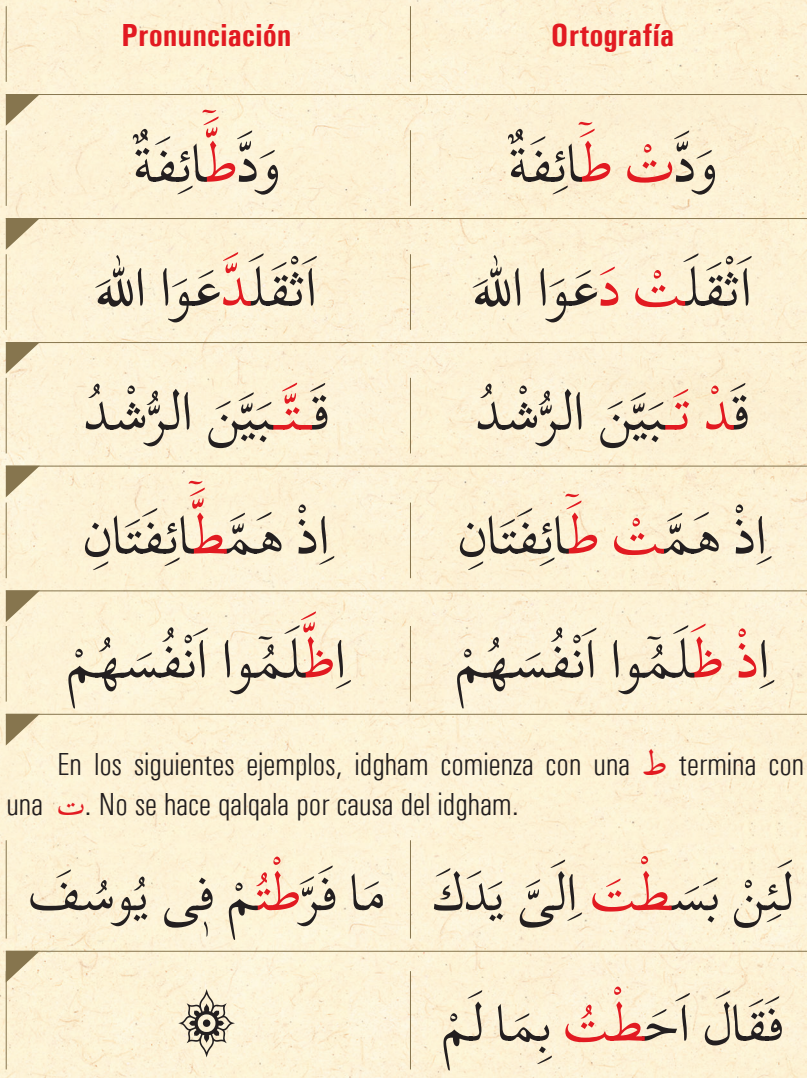 Pronunciación Ortografía
وَدَّتْ طَٓائِفَةٌ وَدَّطَّٓائِفَةٌ
اَثْقَلَتْ دَعَوَا اللهَ اَثْقَلَدَّعَوَا اللهَ
قَدْ تَبَيَّنَ الرُّشْدُ قَتَّبَيَّنَ الرُّشْدُ
اِذْ هَمَّتْ طَٓائِفَتَانِ اِذْ هَمَّطَّٓائِفَتَانِ
اِذْ ظَلَمُٓوا اَنْفُسَهُمْ اِظَّلَمُٓوا اَنْفُسَهُمْ
En los siguientes ejemplos, idgham comienza con una ط termina con
una ت. No se hace qalqala por causa del idgham.
لَئِنْ بَسَطْتَ اِلَىَّ يَدَكَ مَا فَرَّطْتُمْ فٖى يُوسُفَ
فَقَالَ اَحَطْتُ بِمَا لَمْ